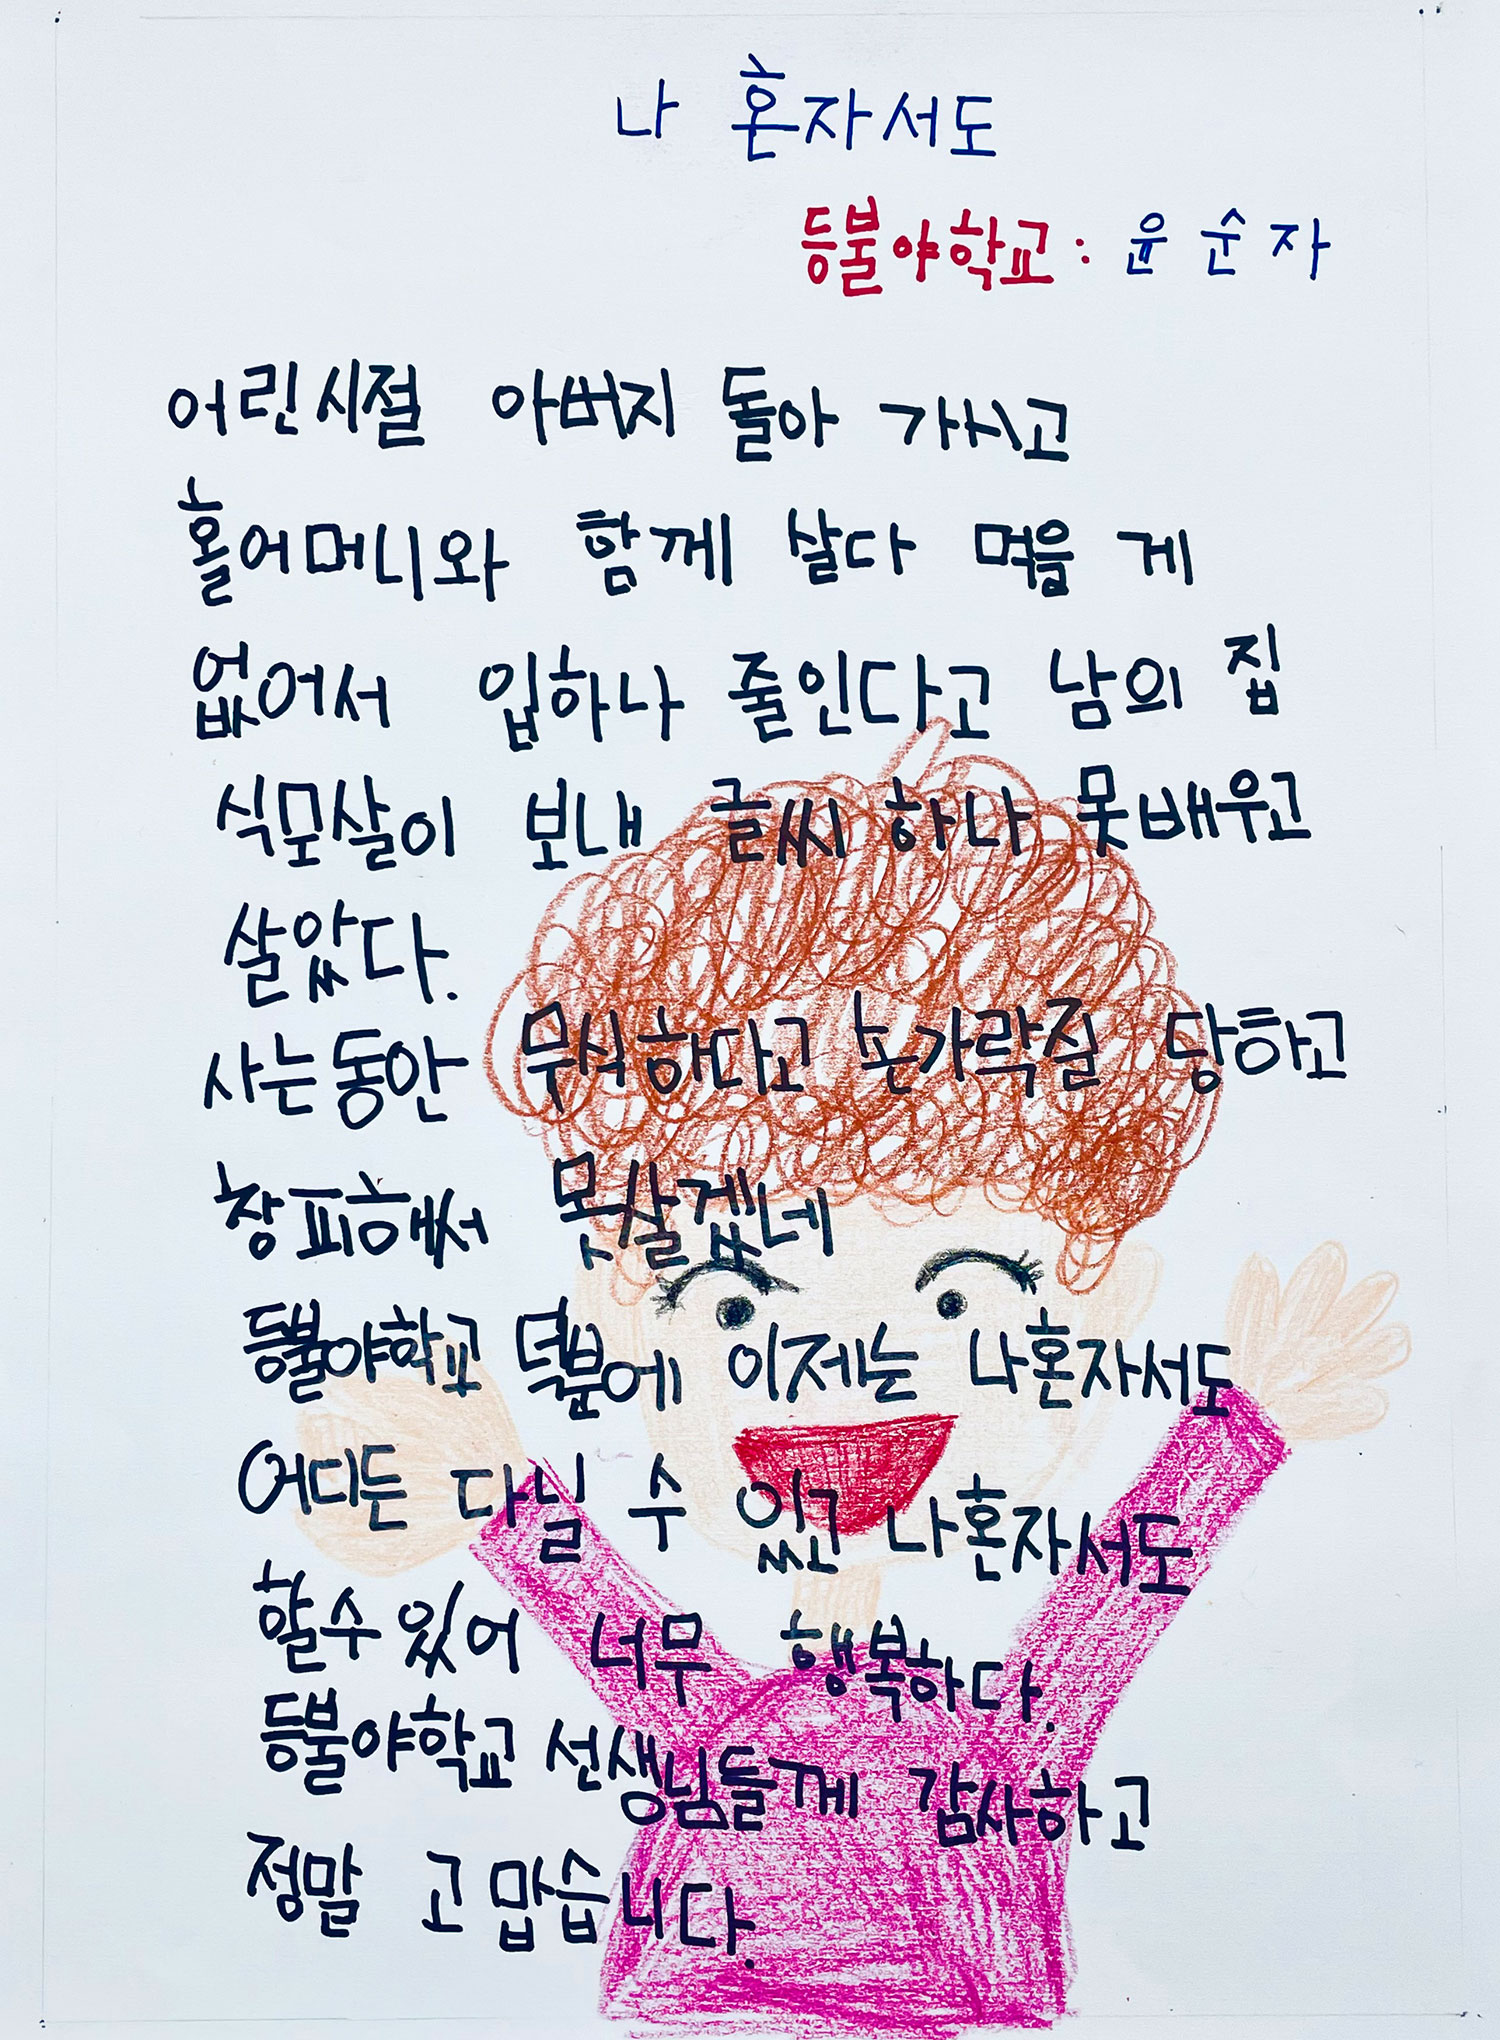 나 혼자서도
등불야학교: 윤 순 자
어린시절 아버지 돌아 가시고
홀어머니와 함께 살다 먹을 게
없어서 입하나 줄인다고 남의 집
식모살이 보내 글씨 하나 못배우고
살았다.
사는동안 무식하다고 손가락질 당하고
창피해서 못살겠네
등불야학교 덕분에 이제는 나혼자서도
어디든 다닐 수 있고 나혼자서도
할수있어 너무 행복하다.
등불야학교 선생님들께 감사하고
정말 고맙습니다.